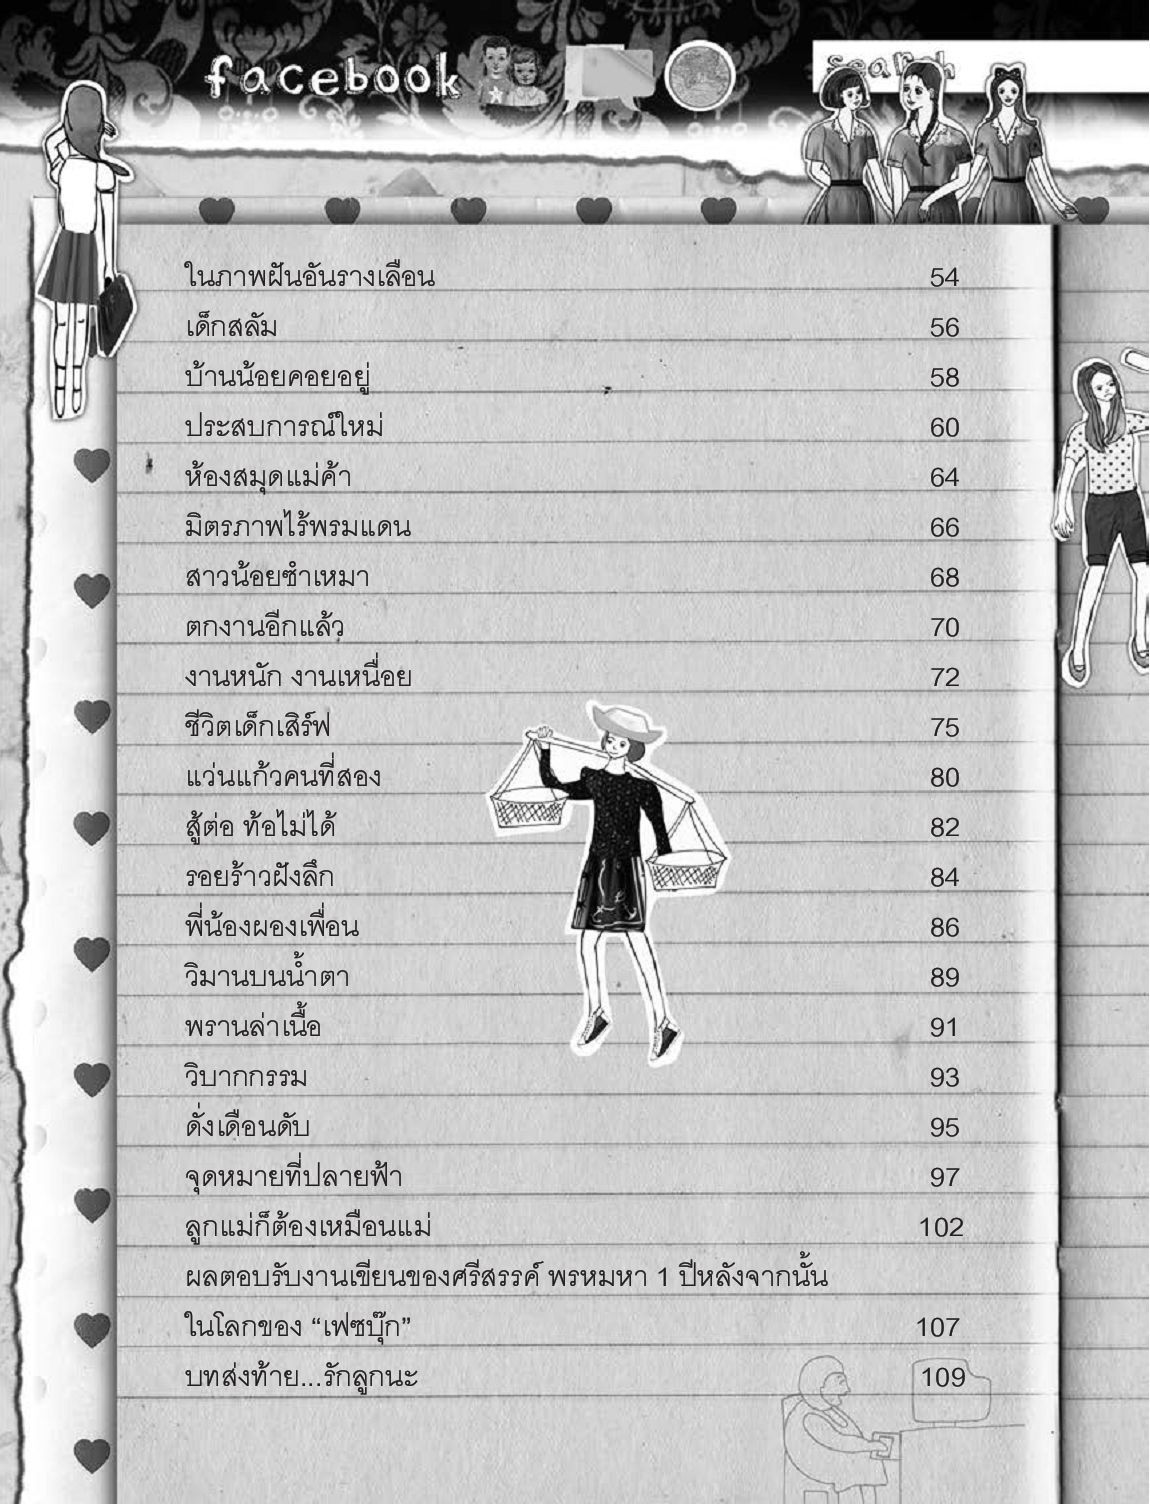 facebook
search
ในภาพฝันอันรางเลือน 54
เด็กสลัม 56
บ้านน้อยคอยอยู่ 58
ประสบการณ์ใหม่ 60
ห้องสมุดแม่ค้า 64
มิตรภาพไร้พรมแดน 66
สาวน้อยซำเหมา 68
ตกงานอีกแล้ว 70
งานหนัก งานเหนื่อย 72
ชีวิตเด็กเสิร์ฟ 75
แว่นแก้วคนที่สอง 80
สู้ต่อ ท้อไม่ได้ 82
รอยร้าวฝังลึก 84
พี่น้องผองเพื่อน 86
วิมานบนน้ำตา 89
พรานล่าเนื้อ 91
วิบากกรรม 93
ดั่งเดือนดับ 95
จุดหมายที่ปลายฟ้า 97
ลูกแม่ก็ต้องเหมือนแม่ 102
ผลตอบรับงานเขียนของศรีสรรค์ พรหมหา 1 ปีหลังจากนั้น
ในโลกของ “เฟซบุ๊ก” 107
บทส่งท้าย...รักลูกนะ 109